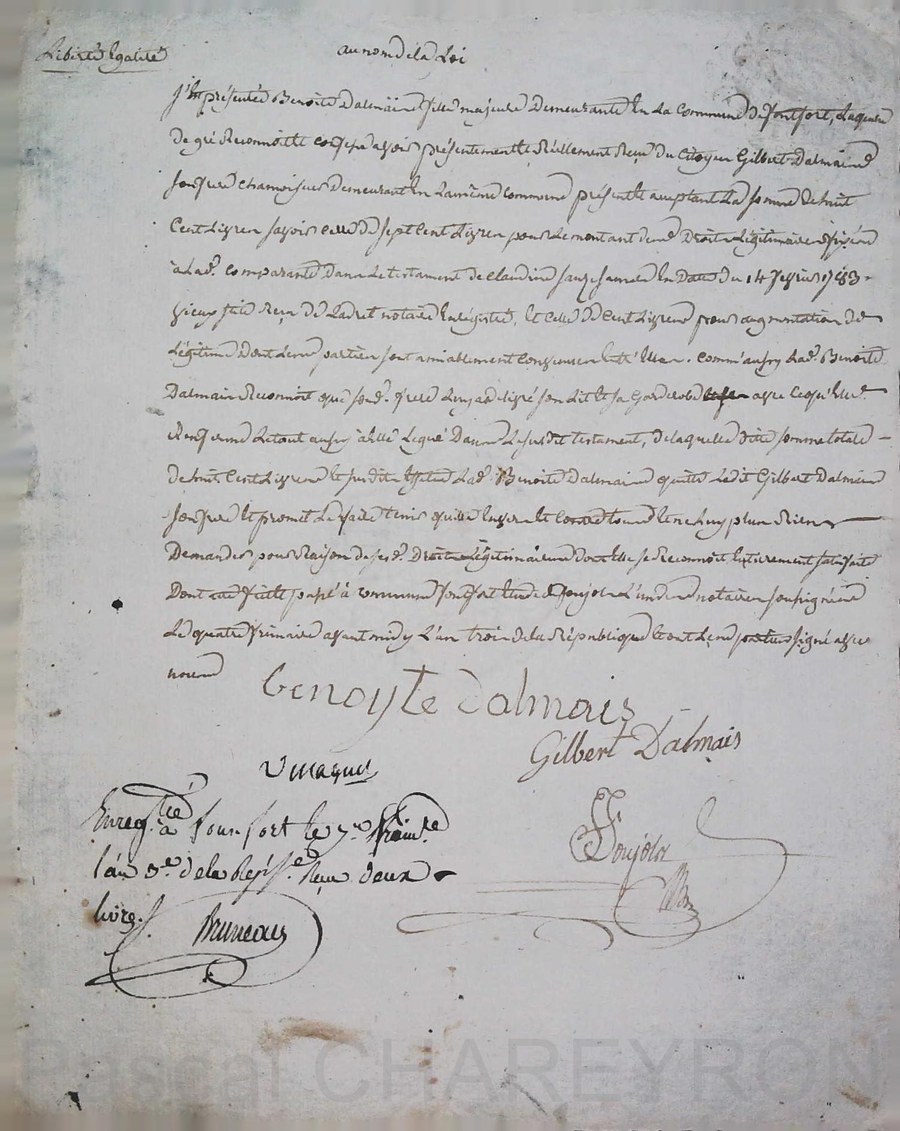 Liberté Egalité
au nom de la Loi
fut présente Benoite Dalmaine fille majeure Demeurante En La Commune de fontfort, Laquelle
de gré Reconnoit et confesse avoir présentement et Réellement Reçu du Citoyen Gilbert Dalmaine
son frere chamoiseur Demeurant En La même commune présent et acceptant La somme de huit
Cent Livres savoir celle de sept Cent Livres pour Le montant de Droits Légitimaires
à Lad.e Comparante Dans Le testament de Claudine En Datte du 14 1783
vieux stile Reçu De notaire Enregistré, et Celle De Cent Livres pour augmentation de
Légitime Dont Les parties sont amiablement Convenues Entre Elles. Comm'aussy Lad.e Benoite
Dalmais Reconnoit que sond. frere Luy a délivré son Lit et sa Garderobe avec Ce qu'Elle
Renferme Le tout aussy à Elle Legué Dans Le susdit testament, de laquelle dite somme totale
de huit Cent Livres et susdits Effets Lad.e Benoite Dalmaine quitte Ledit Gilbert Dalmaine
son frere et promet Le faire tenir quitte Envers et Contre tous et ne Luy plus Rien
Demander pour Raison de sesd. Droits Légitimaires Dont Elle se Reconnoit Entierement satisfaite
Dont acte fait et passé à Commune fonfort Etude de Ponjolz L'un des notaires soussignés
Le quatre frimaire avant midy L'an trois de la République et ont Les parties signé avec
nous
benoyte dalmais
Gilbert Dalmais
Enreg.tré à fontfort le 7.e frim.re
l'an 3.e de la Rép.e Reçu deux
livres.
Bruneau